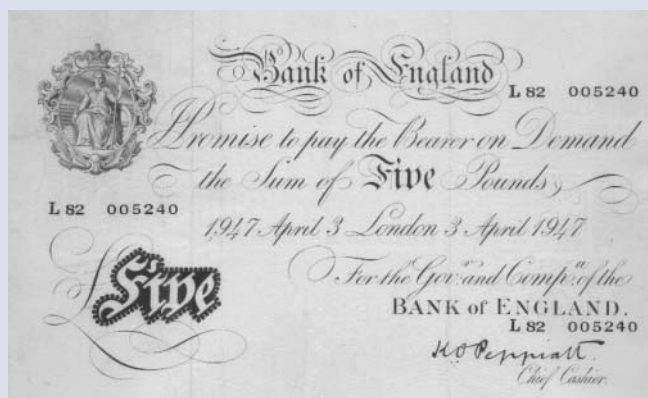 Bank of England
L 82 005240
I Promise to pay the Bearer on Demand
the Sum of Five Pounds
L 82 005240
1947 April 3 London 3 April 1947
For the Govr. and Compa. of the
BANK of ENGLAND.
L 82 005240
£Five
K O Peppiatt.
Chief Cashier.